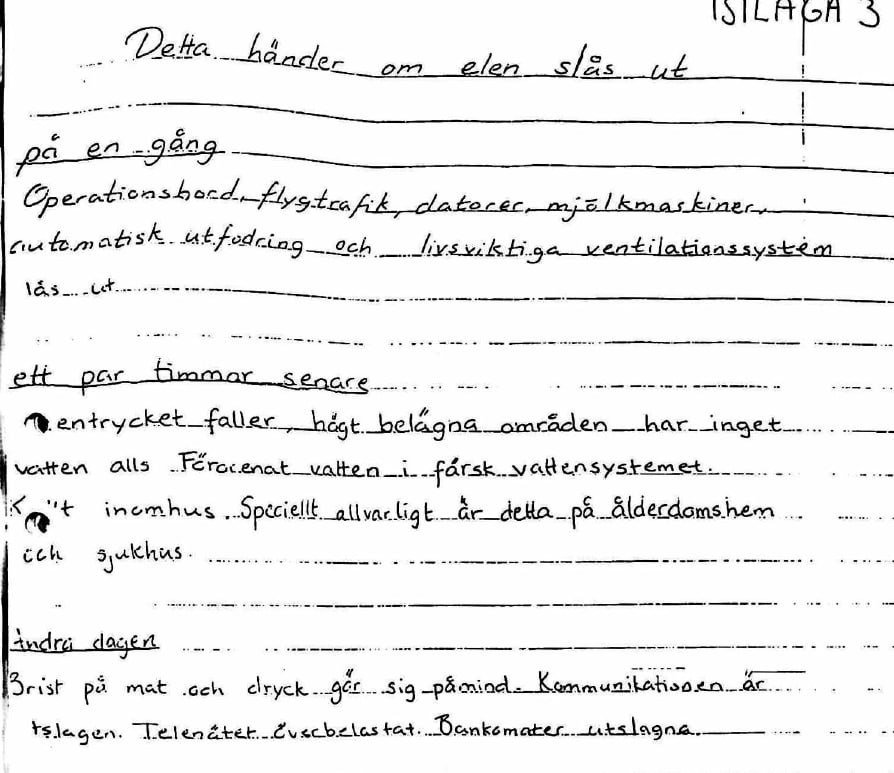 BILAGA 3
Detta händer om elen slås ut
på en gång
Operationsbord, flygtrafik, datorer, mjölkmaskiner,
automatisk utfodring och livsviktiga ventilationssystem
lås ut
ett par timmar senare
entrycket faller, högt belägna områden har inget
vatten alls Förorenat vatten i färsk vattensystemet.
inomhus. Speciellt allvarligt är detta på ålderdomshem
och sjukhus.
Andra dagen
Brist på mat och dryck gör sig påmind. Kommunikationen är
tslagen. Telenätet överbelastat. Bankomater utslagna